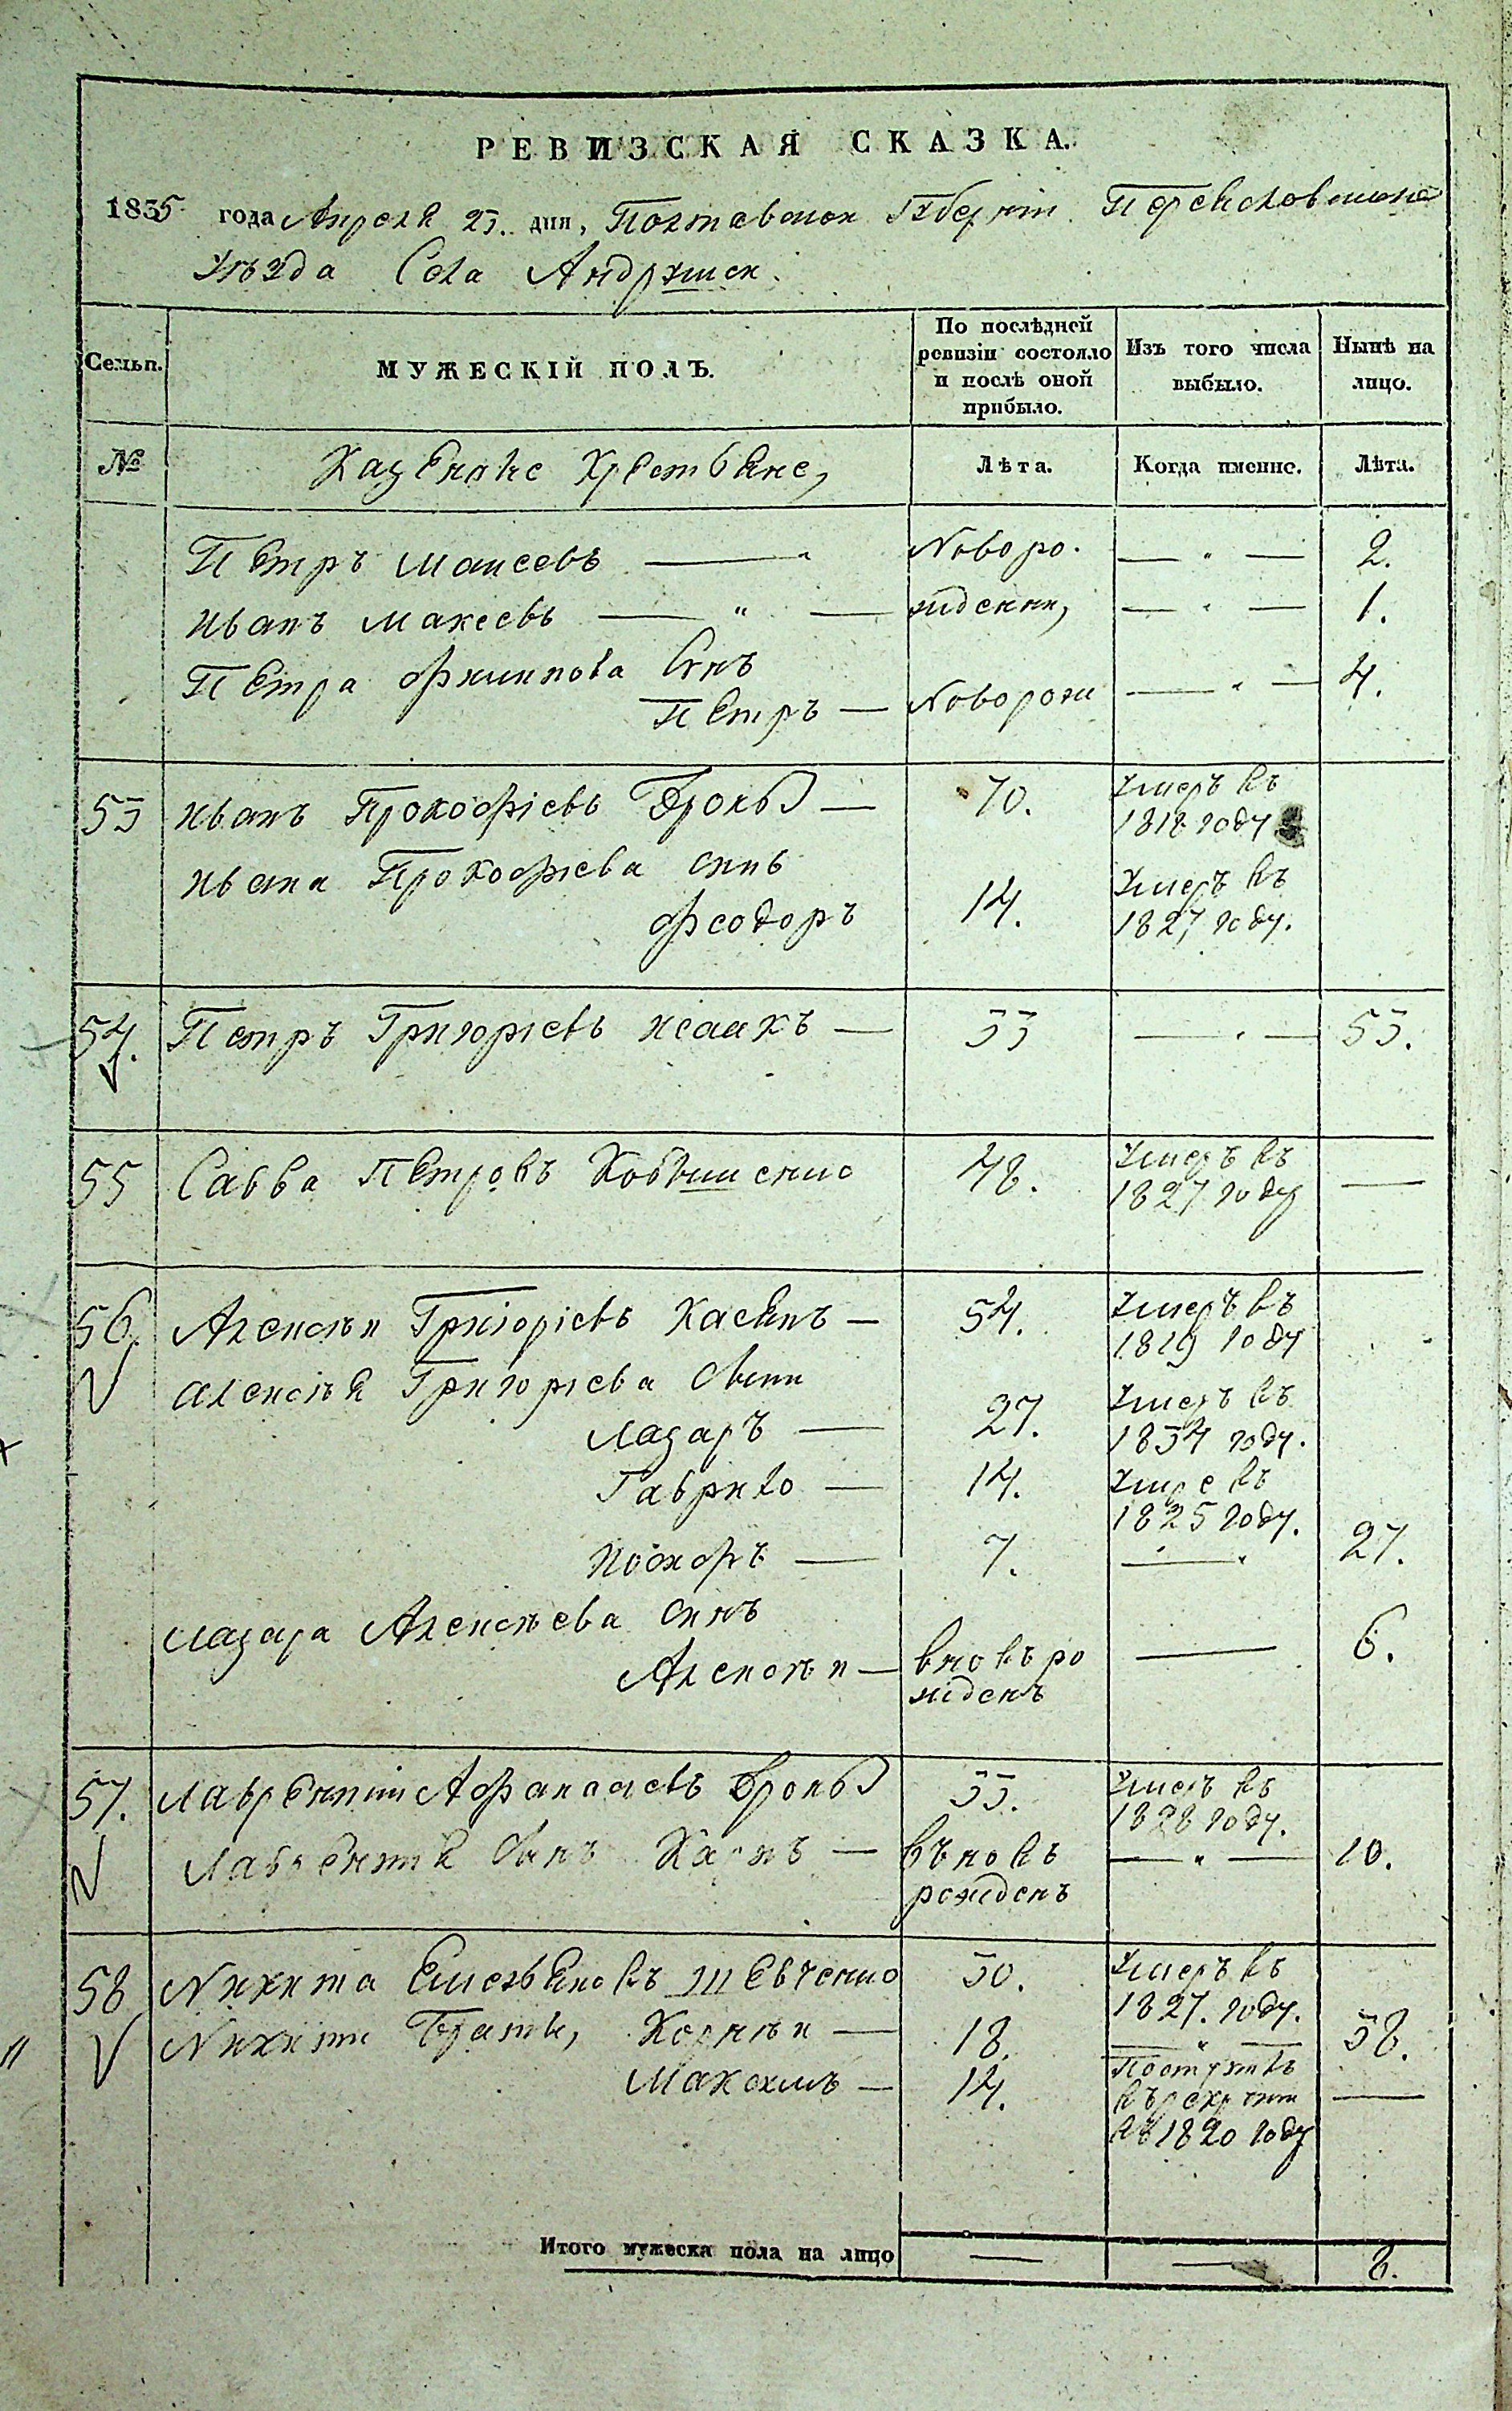 РЕВИЗСКАЯ СКАЗКА.
1835 года Апреля 23. дня, Полтавской Губерніи Переяславскаго
Уѣзда Села Андрушек.
Семьи. МУЖЕСКІЙ ПОЛЪ. По послѣдней ревизіи состояло и послѣ оной прибыло. Изъ того числа выбыло. Нынѣ на лицо.
№ Казенные Крестьяне, Лѣта. Когда именно. Лѣта.
Петръ Моисеевъ — Новоро- — " — 2.
Иванъ Мокеевъ — " — жденни, — " — 1.
Петра Филипова Синъ
Петръ — Новорож — " — 4.
53 Иванъ Прокофіевъ Броль — 70. Умеръ въ 1818 году
Ивана Прокофіева синъ
Феодоръ 14. Умеръ въ 1827 году.
54. Петръ Григоріевъ Исаакъ — 33 — " — 53.
55 Савва Петровъ 48. Умеръ въ 1827 году —
56. Алексѣй Григоріевъ Касянъ — 54. Умеръ въ 1819 году
Алексѣя Григоріева Сыни
Лазаръ — 27. Умеръ въ 1834 году.
Гаврило — 14. Умре въ 1825 году.
Никифръ — 7. — " 27.
Лазара Алексѣева синъ
Алексѣй — вновъ рожденъ — 6.
57. Лаврентій Афанасіевъ Броль 33. Умеръ въ 1828 году.
Лаврентія Сынъ Карпъ — въновь рожденъ — " — 10.
58 Никита Емельяновъ Шевченко 30. Умеръ въ 1827. году.
Никити Братья, Корнѣй — 18. — " — 38.
Максимъ — 14. Поступилъ въ рекрути въ 1820 году —
Итого мужеска пола на лицо — — 8.